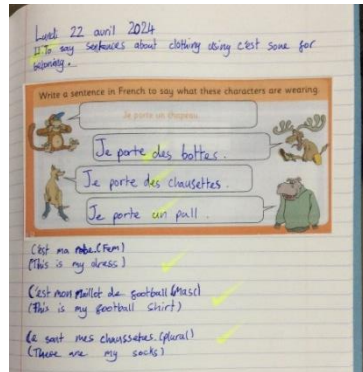 Lundi 22 avril 2024
LI: To say sentences about clothing using c'est sont for
belonging.
Write a sentence in French to say what these characters are wearing.
Je porte un chapeau.
Je porte des bottes.
Je porte des chausettes.
Je porte un pull.
C'est ma robe. (Fem)
(This is my dress)
C'est mon Maillot de football (Masc)
(This is my football shirt)
Ce sont mes chaussetes. (plural)
(These are my socks)